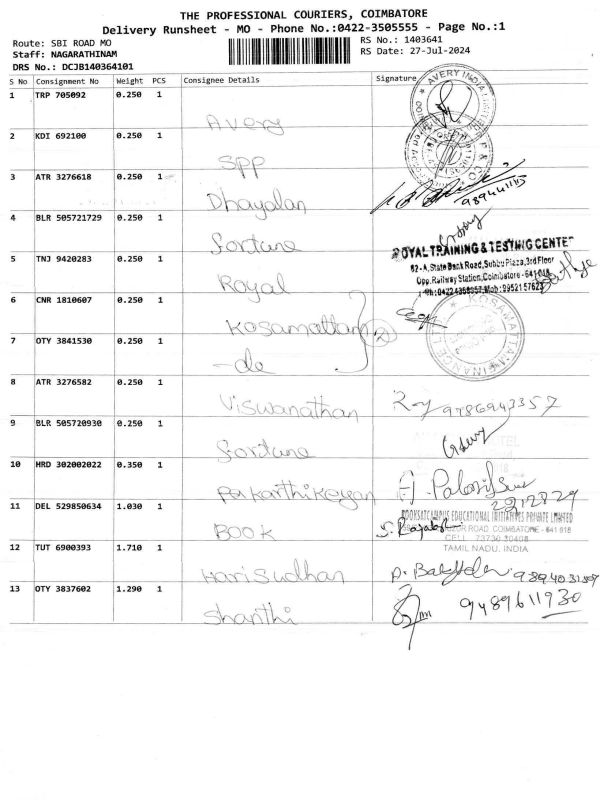 THE PROFESSIONAL COURIERS, COIMBATORE
Delivery Runsheet - MO - Phone No.:0422-3505555 - Page No.:1
Route: SBI ROAD MO
Staff: NAGARATHINAM
DRS No.: DCJB140364101
RS No.: 1403641
RS Date: 27-Jul-2024
S No Consignment No Weight PCS Consignee Details Signature
1 TRP 705092 0.250 1
Avery
AVERY INDIA
2 KDI 692100 0.250 1
SPP
& CO
3 ATR 3276618 0.250 1
Dhayalan
4 BLR 505721729 0.250 1
Fortune
5 TNJ 9420283 0.250 1
Royal
ROYAL TRAINING & TESTING CENTER
82-A, State Bank Road, Subbu Plaza, 3rd Floor
Opp. Railway Station, Coimbatore - 641 018
6 CNR 1810607 0.250 1
Kosamattam
2
KOSAMATTAM FINANCE
7 OTY 3841530 0.250 1
-do
8 ATR 3276582 0.250 1
Viswanathan
9786943357
9 BLR 505720930 0.250 1
Fortune
10 HRD 302002022 0.350 1
Karthikeyan
11 DEL 529850634 1.030 1
Book
BOOKSATCAMPUS EDUCATIONAL INITIATIVES PRIVATE LIMITED
ROAD, COIMBATORE - 641 018
CELL : 73730 30408
TAMIL NADU, INDIA
12 TUT 6900393 1.710 1
Harisudhan
13 OTY 3837602 1.290 1
Shanthi
9489611930